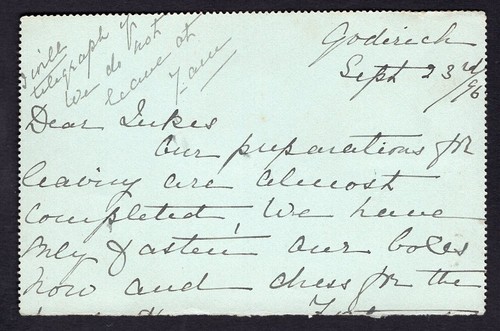 I will
telegraph if
we do not
leave at
7 am
Goderich
Sept 23rd/96
Dear Jukes
Our preparations for
leaving are almost
completed, we have
only to fasten our boxes
now and dress for the